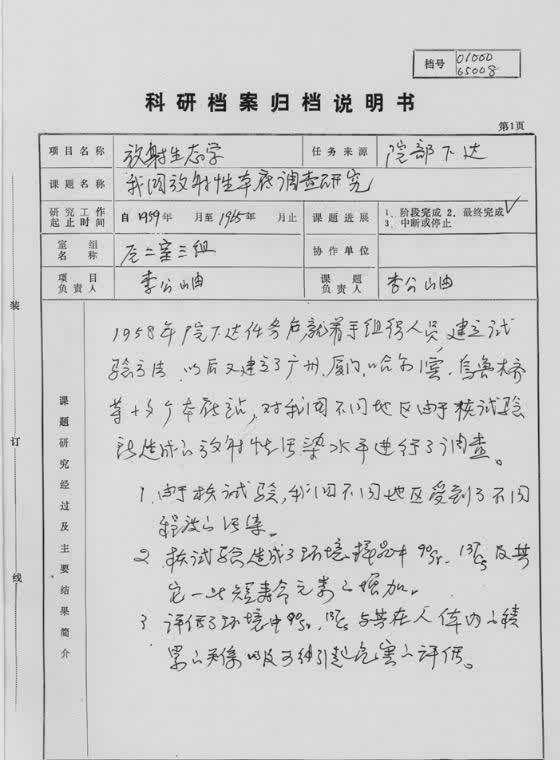 档号 01000
65008
科研档案归档说明书
第1页
项目名称 放射生态学 任务来源 院部下达
课题名称 我国放射性本底调查研究
研究工作起止时间 自1959年 月至1965年 月止 课题进展 1、阶段完成 2、最终完成✓
3、中断或停止
室组名称 原二室三组 协作单位
项目负责人 李公岫 课题负责人 李公岫
课题研究经过及主要结果简介
1958年院下达任务后就着手组织人员,建立试
验方法,以后又建立了广州、厦门、哈尔滨、乌鲁木齐
等十多个本底站,对我国不同地区由于核试验
所造成的放射性污染水平进行了调查。
1. 由于核试验,我国不同地区受到了不同
程度的污染。
2. 核试验造成了环境样品中90Sr、137Cs及其
它一些短寿命元素的增加。
3. 评价了环境中90Sr、137Cs与其在人体内的积
累的关系以及可能引起危害的评价。
装
订
线